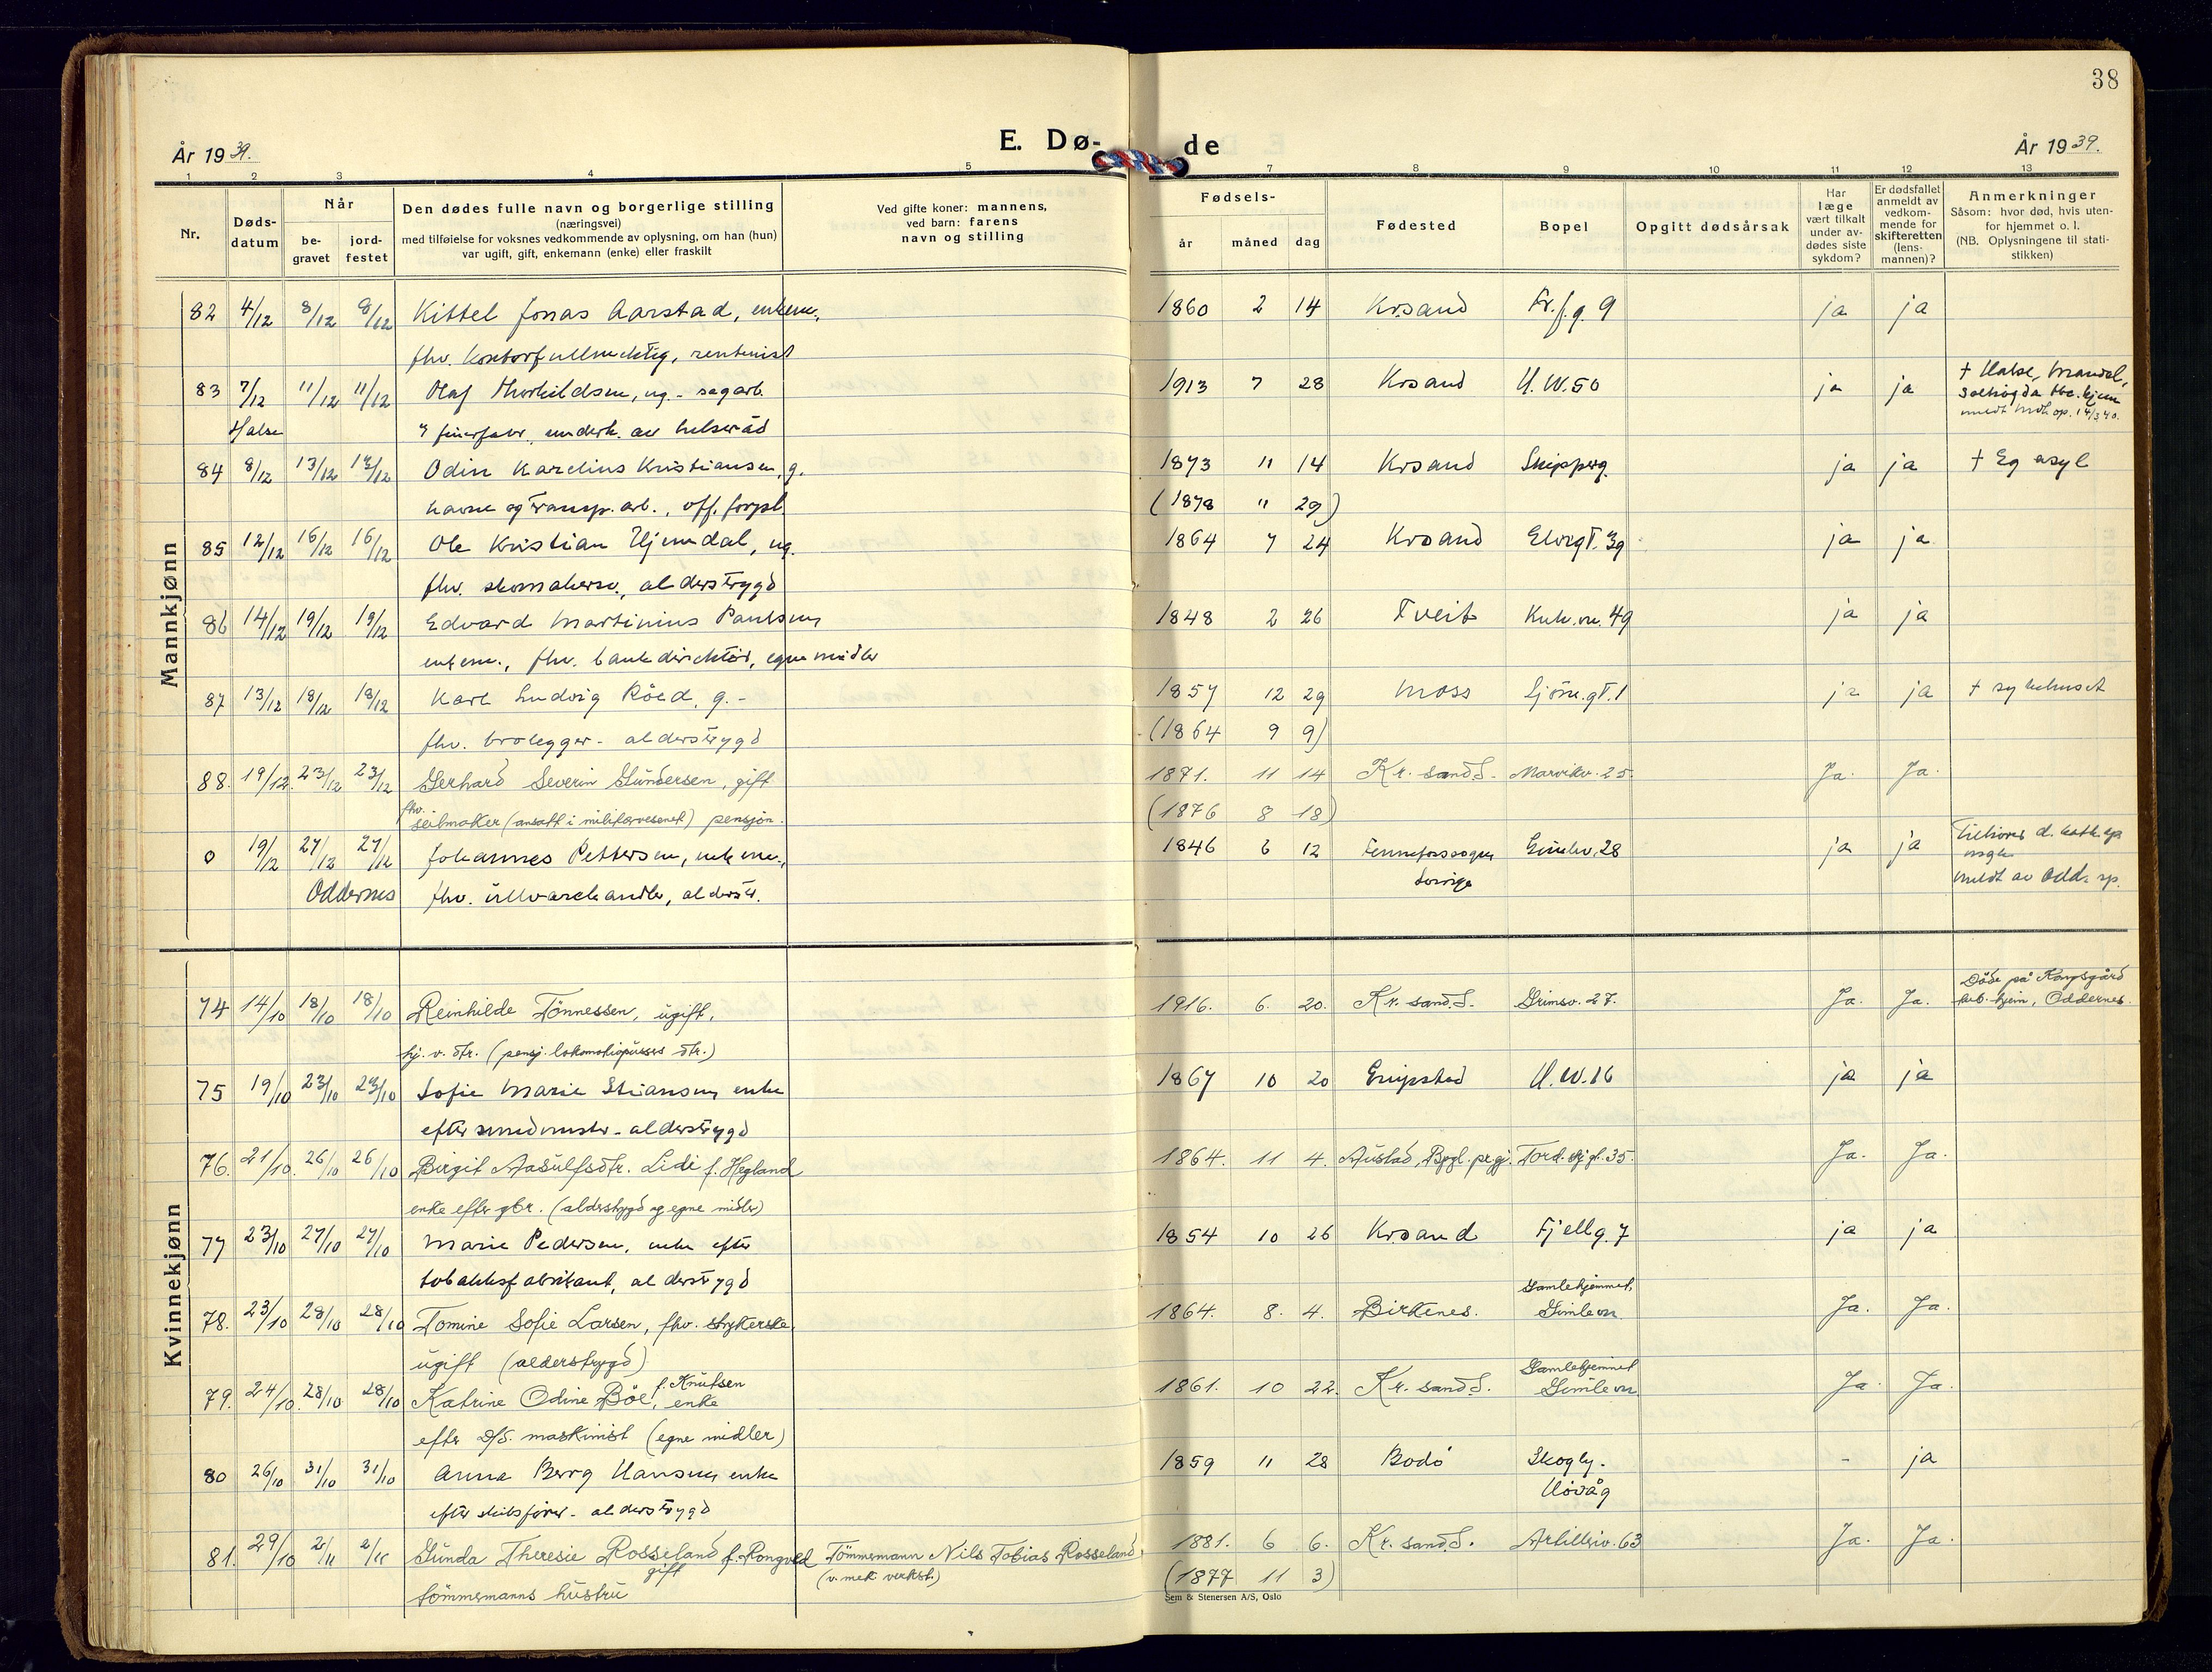 38
År 1939.
E. Dø-
de
År 1939.
1 2 3 4 5 7 8 9 10 11 12 13
Nr.
Døds-
datum
Når
be-
gravet
jord-
festet
Den dødes fulle navn og borgerlige stilling
(næringsvei)
med tilføielse for voksnes vedkommende av oplysning, om han (hun)
var ugift, gift, enkemann (enke) eller fraskilt
Ved gifte koner: mannens,
ved barn: farens
navn og stilling
Fødsels-
år
måned
dag
Fødested
Bopel
Opgitt dødsårsak
Har
læge
vært tilkalt
under av-
dødes siste
sykdom?
Er dødsfallet
anmeldt av
vedkom-
mende for
skifteretten
(lens-
mannen)?
Anmerkninger
Såsom: hvor død, hvis uten-
for hjemmet o. l.
(NB. Oplysningene til stati-
stikken)
Mannkjønn
82 4/12 8/12 8/12 Kittel Jonas Aarstad, enkem. 1860 2 14 Krsand Fr.f.g. 9 ja ja
fhv. kontorfullmektig, rentenist
83 7/12 11/12 11/12 Olaf Thorkildsen, ug. - sagarb. 1913 7 28 Krsand U.W.50 ja ja † Halse, Mandal,
Halse
underh. av helseråd
84 8/12 13/12 13/12 Odin Karelius Kristiansen, g. 1873 11 14 Krsand Skipperg. ja ja † Eg asyl
havne og transp. arb., off. forpl. (1878 11 29)
85 12/12 16/12 16/12 Ole Kristian Hjemdal, ug. 1864 7 24 Krsand Elvegt. 39 ja ja
fhv. skomakersv., alderstrygd
86 14/12 19/12 19/12 Edvard Martinius Paulsen 1848 2 26 Tveit Kuh.vn. 49 ja ja
enkem., fhv. bankdirektør, egne midler
87 13/12 18/12 18/12 Karl Ludvig Röed, g. - 1857 12 29 Moss Sjöm.gt. 1 ja ja † sykehuset
fhv. brolegger - alderstrygd (1864 9 9)
88. 19/12. 23/12 23/12 Gerhard Severin Gundersen, gift 1871. 11 14 Kr. sand S. Marvikv. 25. Ja. Ja.
fhv. seilmaker (ansatt i militærvesenet) pensjon. (1876 8 18)
0 19/12 27/12 27/12 Johannes Pettersen, enkem., 1846 6 12 Gimlev. 28 ja ja Tilhører d. kath. ap
Sverige
Oddernes fhv. ullvarehandler, alderstr. meldt av Odd. sp.
Kvinnekjønn
74 14/10 18/10 18/10 Reinhilde Tönnessen, ugift, 1916. 6. 20. Kr. sand S. Grimsv. 27. Ja. Ja. Döde på Kongsgård
hj. v. dtr. (pensj. lokomotivpussers dtr.) hjem, Oddernes.
75 19/10 23/10 23/10 Sofie Marie Stiansen enke 1867 10 20 Gripstad U.W.16 ja ja
efter smedmester - alderstrygd
76. 21/10. 26/10 26/10 Birgit Aasulfsdtr. Lidi f. Hegland 1864. 11 4. Austad, Bygl. prgj. Tord. skj. gt. 35. Ja. Ja.
enke efter gbr. (alderstrygd og egne midler)
77 23/10 27/10 27/10 Marie Pedersen, enke efter 1854 10 26 Krsand Fjellg. 7 ja ja
tobakksfabrikant, alderstrygd
78. 23/10 28/10 28/10 Tomine Sofie Larsen, fhv. strykerske, 1864. 8. 4. Birkenes. Gamlehjemmet, Gimlevn. Ja. Ja.
ugift (alderstrygd)
79. 24/10. 28/10 28/10 Katrine Odine Böe, f. Knutsen enke 1861. 10 22. Kr. sand S. Gamlehjemmet Gimlevn Ja. Ja.
efter D/S. maskinist (egne midler)
80 26/10 31/10 31/10 Anna Berg Hansen enke 1859 11 28 Bodö Skogly. - ja
efter skibsfører - alderstrygd Høvåg
81. 29/10 2/11 2/11 Gunda Theresie Rosseland f. Rongved Tömmermann Nils Tobias Rosseland. 1881. 6 6. Kr. sand S. Artilleriv. 63 Ja. Ja.
gift (v. mek. verkst.) (1877 11 3)
tömmermanns hustru
Sem & Stenersen A/S, Oslo